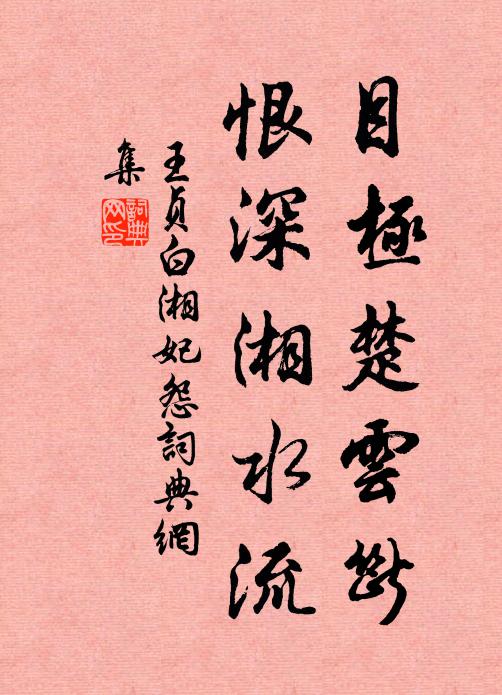 目極楚雲斷
恨深湘水流
王貞白湘妃怨詞典網
集
詞典
网印